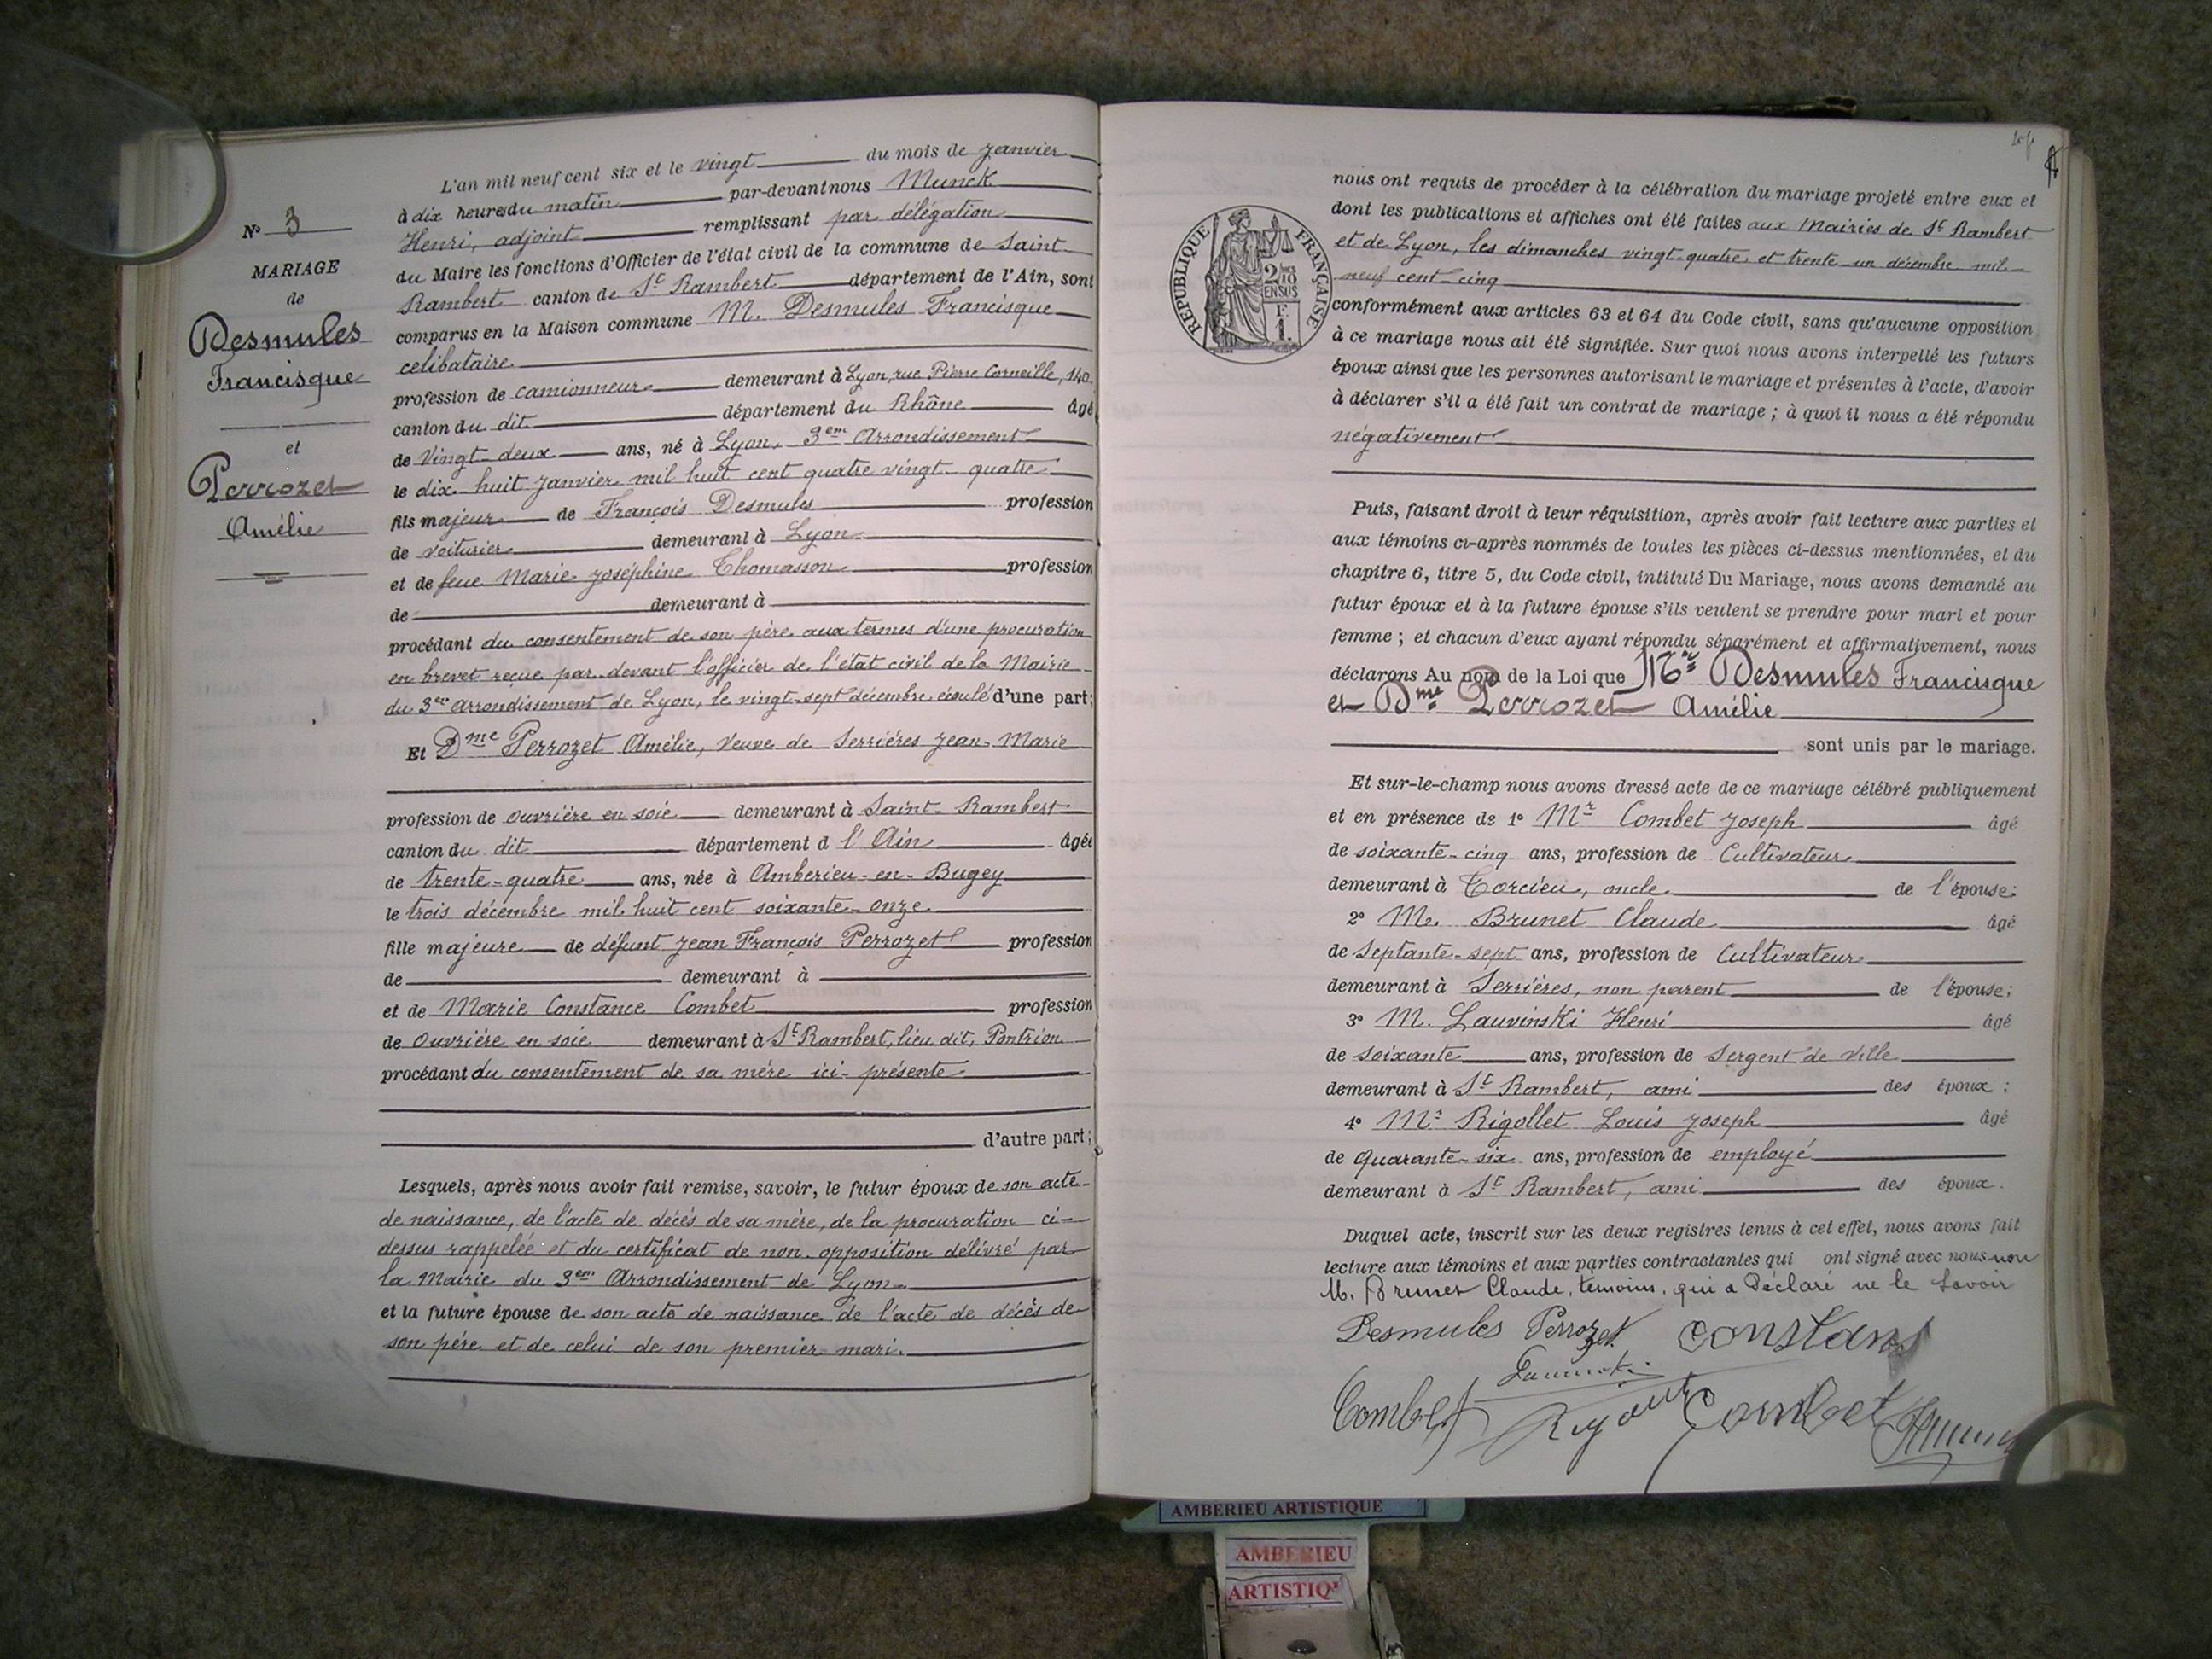 N° 3
MARIAGE
de
Desmules
Francisque
et
Perrozet
Amélie
L'an mil neuf cent six et le vingt du mois de Janvier
à dix heures du matin par-devant nous Munck
Henri, adjoint remplissant par délégation
du Maire les fonctions d'Officier de l'état civil de la commune de Saint
Rambert canton de St Rambert département de l'Ain, sont
comparus en la Maison commune M. Desmules Francisque
celibataire
profession de camionneur demeurant à Lyon, rue Pierre Corneille, 140
canton du dit département du Rhône âgé
de Vingt-deux ans, né à Lyon, 3em Arrondissement
le dix-huit Janvier mil huit cent quatre vingt-quatre
fils majeur de François Desmules profession
de voiturier demeurant à Lyon
et de feue Marie Joséphine Thomasson profession
de demeurant à
procédant du consentement de son père aux termes d'une procuration
en brevet reçue par-devant l'officier de l'état civil de la Mairie
du 3em arrondissement de Lyon, le vingt-sept décembre écoulé d'une part;
Et Dme Perrozet Amélie, Veuve de Serriéres Jean-Marie
profession de ouvrière en soie demeurant à Saint-Rambert
canton du dit département d l'Ain âgée
de trente-quatre ans, née à Amberieu-en-Bugey
le trois décembre mil huit cent soixante-onze
fille majeure de défunt Jean François Perrozet profession
de demeurant à
et de Marie Constance Combet profession
de ouvrière en soie demeurant à St Rambert, lieu dit, Pontrion
procédant du consentement de sa mère ici-présente
d'autre part;
Lesquels, après nous avoir fait remise, savoir, le futur époux de son acte
de naissance, de l'acte de décès de sa mère, de la procuration ci-
dessus rappelée et du certificat de non-opposition délivré par
la Mairie du 3em Arrondissement de Lyon
et la future épouse de son acte de naissance de l'acte de décès de
son père et de celui de son premier mari.
nous ont requis de procéder à la célébration du mariage projeté entre eux et
dont les publications et affiches ont été faites aux Mairies de St Rambert
et de Lyon, les dimanches vingt-quatre et trente-un décembre mil
neuf cent-cinq
RÉPUBLIQUE FRANÇAISE
2/10
EN SUS
F.
1.
conformément aux articles 63 et 64 du Code civil, sans qu'aucune opposition
à ce mariage nous ait été signifiée. Sur quoi nous avons interpellé les futurs
époux ainsi que les personnes autorisant le mariage et présentes à l'acte, d'avoir
à déclarer s'il a été fait un contrat de mariage ; à quoi il nous a été répondu
négativement
Puis, faisant droit à leur réquisition, après avoir fait lecture aux parties et
aux témoins ci-après nommés de toutes les pièces ci-dessus mentionnées, et du
chapitre 6, titre 5, du Code civil, intitulé Du Mariage, nous avons demandé au
futur époux et à la future épouse s'ils veulent se prendre pour mari et pour
femme ; et chacun d'eux ayant répondu séparément et affirmativement, nous
déclarons Au nom de la Loi que Mr Desmules Francisque
et Dme Perrozet Amélie
sont unis par le mariage.
Et sur-le-champ nous avons dressé acte de ce mariage célébré publiquement
et en présence de 1° Mr Combet Joseph âgé
de soixante-cinq ans, profession de Cultivateur
demeurant à Torcieu, oncle de l'épouse;
2° M. Brunet Claude âgé
de Septante-sept ans, profession de Cultivateur
demeurant à Serrières, non parent de l'épouse;
3° M. Lauvinski Henri âgé
de soixante ans, profession de Sergent de Ville
demeurant à St Rambert, ami des époux ;
4° Mr Rigollet Louis Joseph âgé
de quarante-six ans, profession de employé
demeurant à St Rambert, ami des époux.
Duquel acte, inscrit sur les deux registres tenus à cet effet, nous avons fait
lecture aux témoins et aux parties contractantes qui ont signé avec nous non
M. Brunet Claude, temoins, qui a Déclaré ne le Savoir
Desmules Perrozet Constans
Combet Combet
AMBERIEU ARTISTIQUE
AMBERIEU
ARTISTIQ'